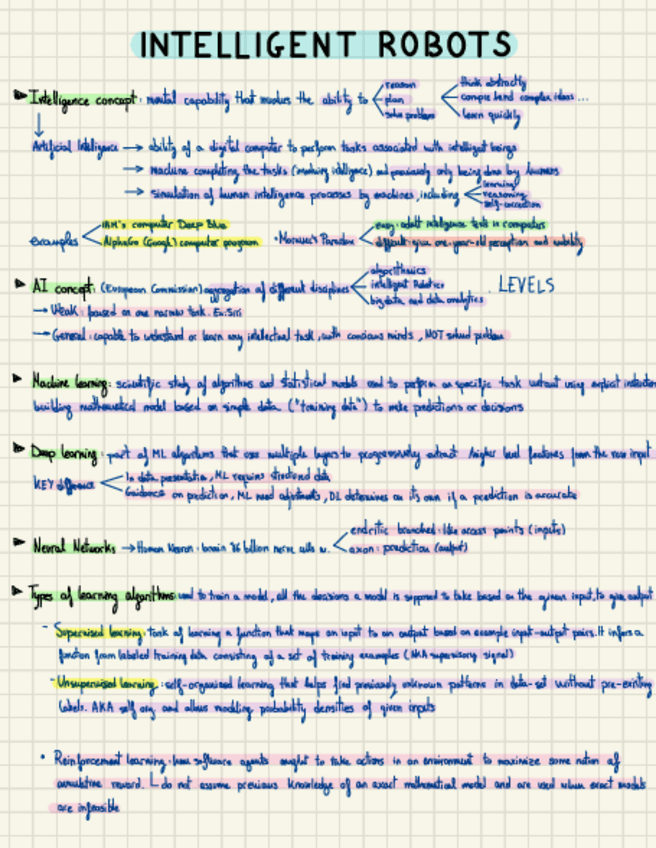 INTELLIGENT ROBOTS
Intelligence concept: mental capability that involves the ability to
reason
plan
solve problems
think abstractly
comprehend complex ideas ...
learn quickly
Artificial Intelligence → ability of a digital computer to perform tasks associated with intelligent beings
→ machine completing the tasks (involving intelligence) and previously only being done by humans
→ simulation of human intelligence processes by machines, including
learning
reasoning
self-correction
examples
IBM's computer Deep Blue
AlphaGo (Google) computer program
• Moravec's Paradox
easy: adult intelligence tests in computers
difficult: give one-year-old perception and mobility
AI concept: (European Commission) aggregation of different disciplines
algorithmics
intelligent Robotics
big data and data analytics
LEVELS
→ Weak: focused on one narrow task. Ex: Siri
→ General: capable to understand or learn any intelectual task, with concious minds, NOT solved problem
Machine learning: scientific study of algorithms and statistical models used to perform an specific task without using explicit
building mathematical model based on simple data ("training data") to make predictions or decisions
Deep learning: part of ML algorithms that use multiple layers to progressively extract higher level features from the raw input
KEY difference
In data presentation, ML requires structured data
Guidance on prediction, ML need adjustments, DL determines on its own if a prediction is accurate
Neural Networks → Human Neuron: brain 86 billion nerve cells w.
axon: prediction (output)
branched: like access points (inputs)
Types of learning algorithms used to train a model, all the decisions a model is supposed to take based on the given input, to give output
- Supervised learning: task of learning a function that maps an input to an output based on example input-output pairs. It infers a
function from labeled training data consisting of a set of training examples (AKA supervisory signal)
- Unsupervised learning: self-organised learning that helps find previously unknown patterns in data-set without pre-existing
labels. AKA self org. and allows modeling probability densities of given inputs
• Reinforcement learning: how software agents ought to take actions in an environment to maximize some notion of
cumulative reward. do not assume previous knowledge of an exact mathematical model and are used when exact models
are infeasible